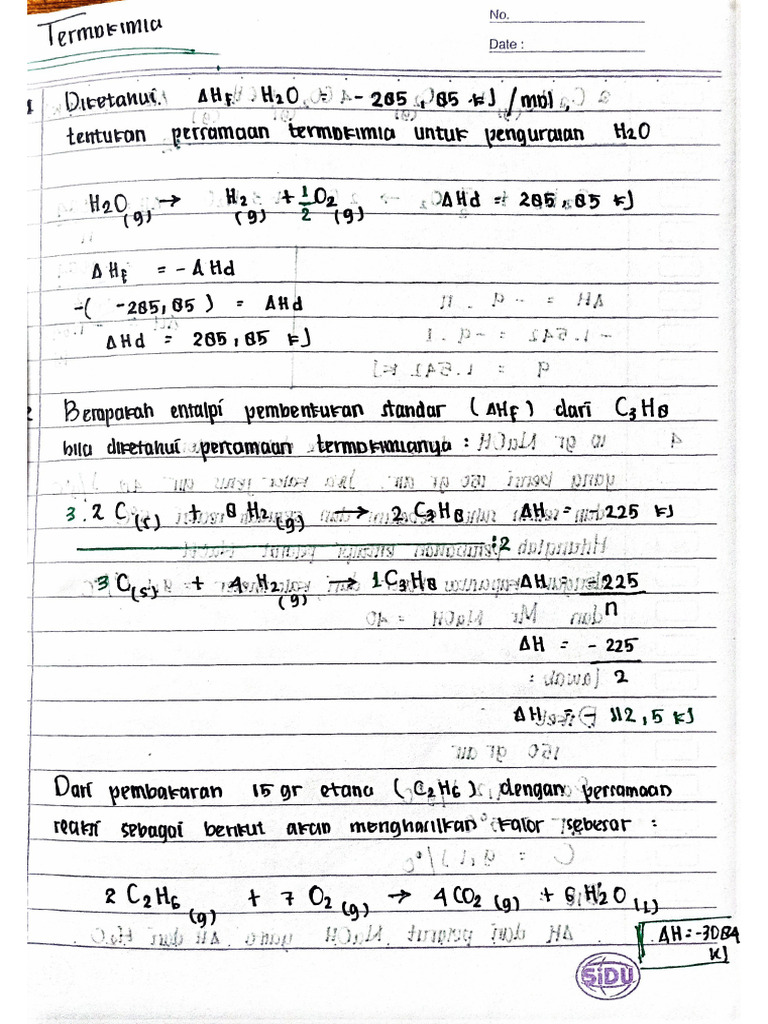 Termokimia
No.
Date :
1 Diketahui ΔHf H2O = -285,85 kJ/mol,
tentukan persamaan termokimia untuk penguraian H2O
H2O(g) → H2(g) + 1/2 O2(g) ΔHd = 285,85 kJ
ΔHf = -ΔHd
-( -285,85 ) = ΔHd
ΔHd = 285,85 kJ
2 Berapakah entalpi pembentukan standar (ΔHf) dari C3H8
bila diketahui persamaan termokimianya :
3 : 2 C(s) + 8 H2(g) → 2 C3H8 ΔH = -225 kJ
:2
3 C(s) + 4 H2(g) → 1 C3H8 ΔH = 225
n
ΔH = - 225
2
ΔH = - 112,5 kJ
Dari pembakaran 15 gr etana (C2H6) dengan persamaan
reaksi sebagai berikut akan menghasilkan kalor sebesar :
2 C2H6(g) + 7 O2(g) → 4CO2(g) + 6 H2O(l)
ΔH = -3084
kJ
SiDU